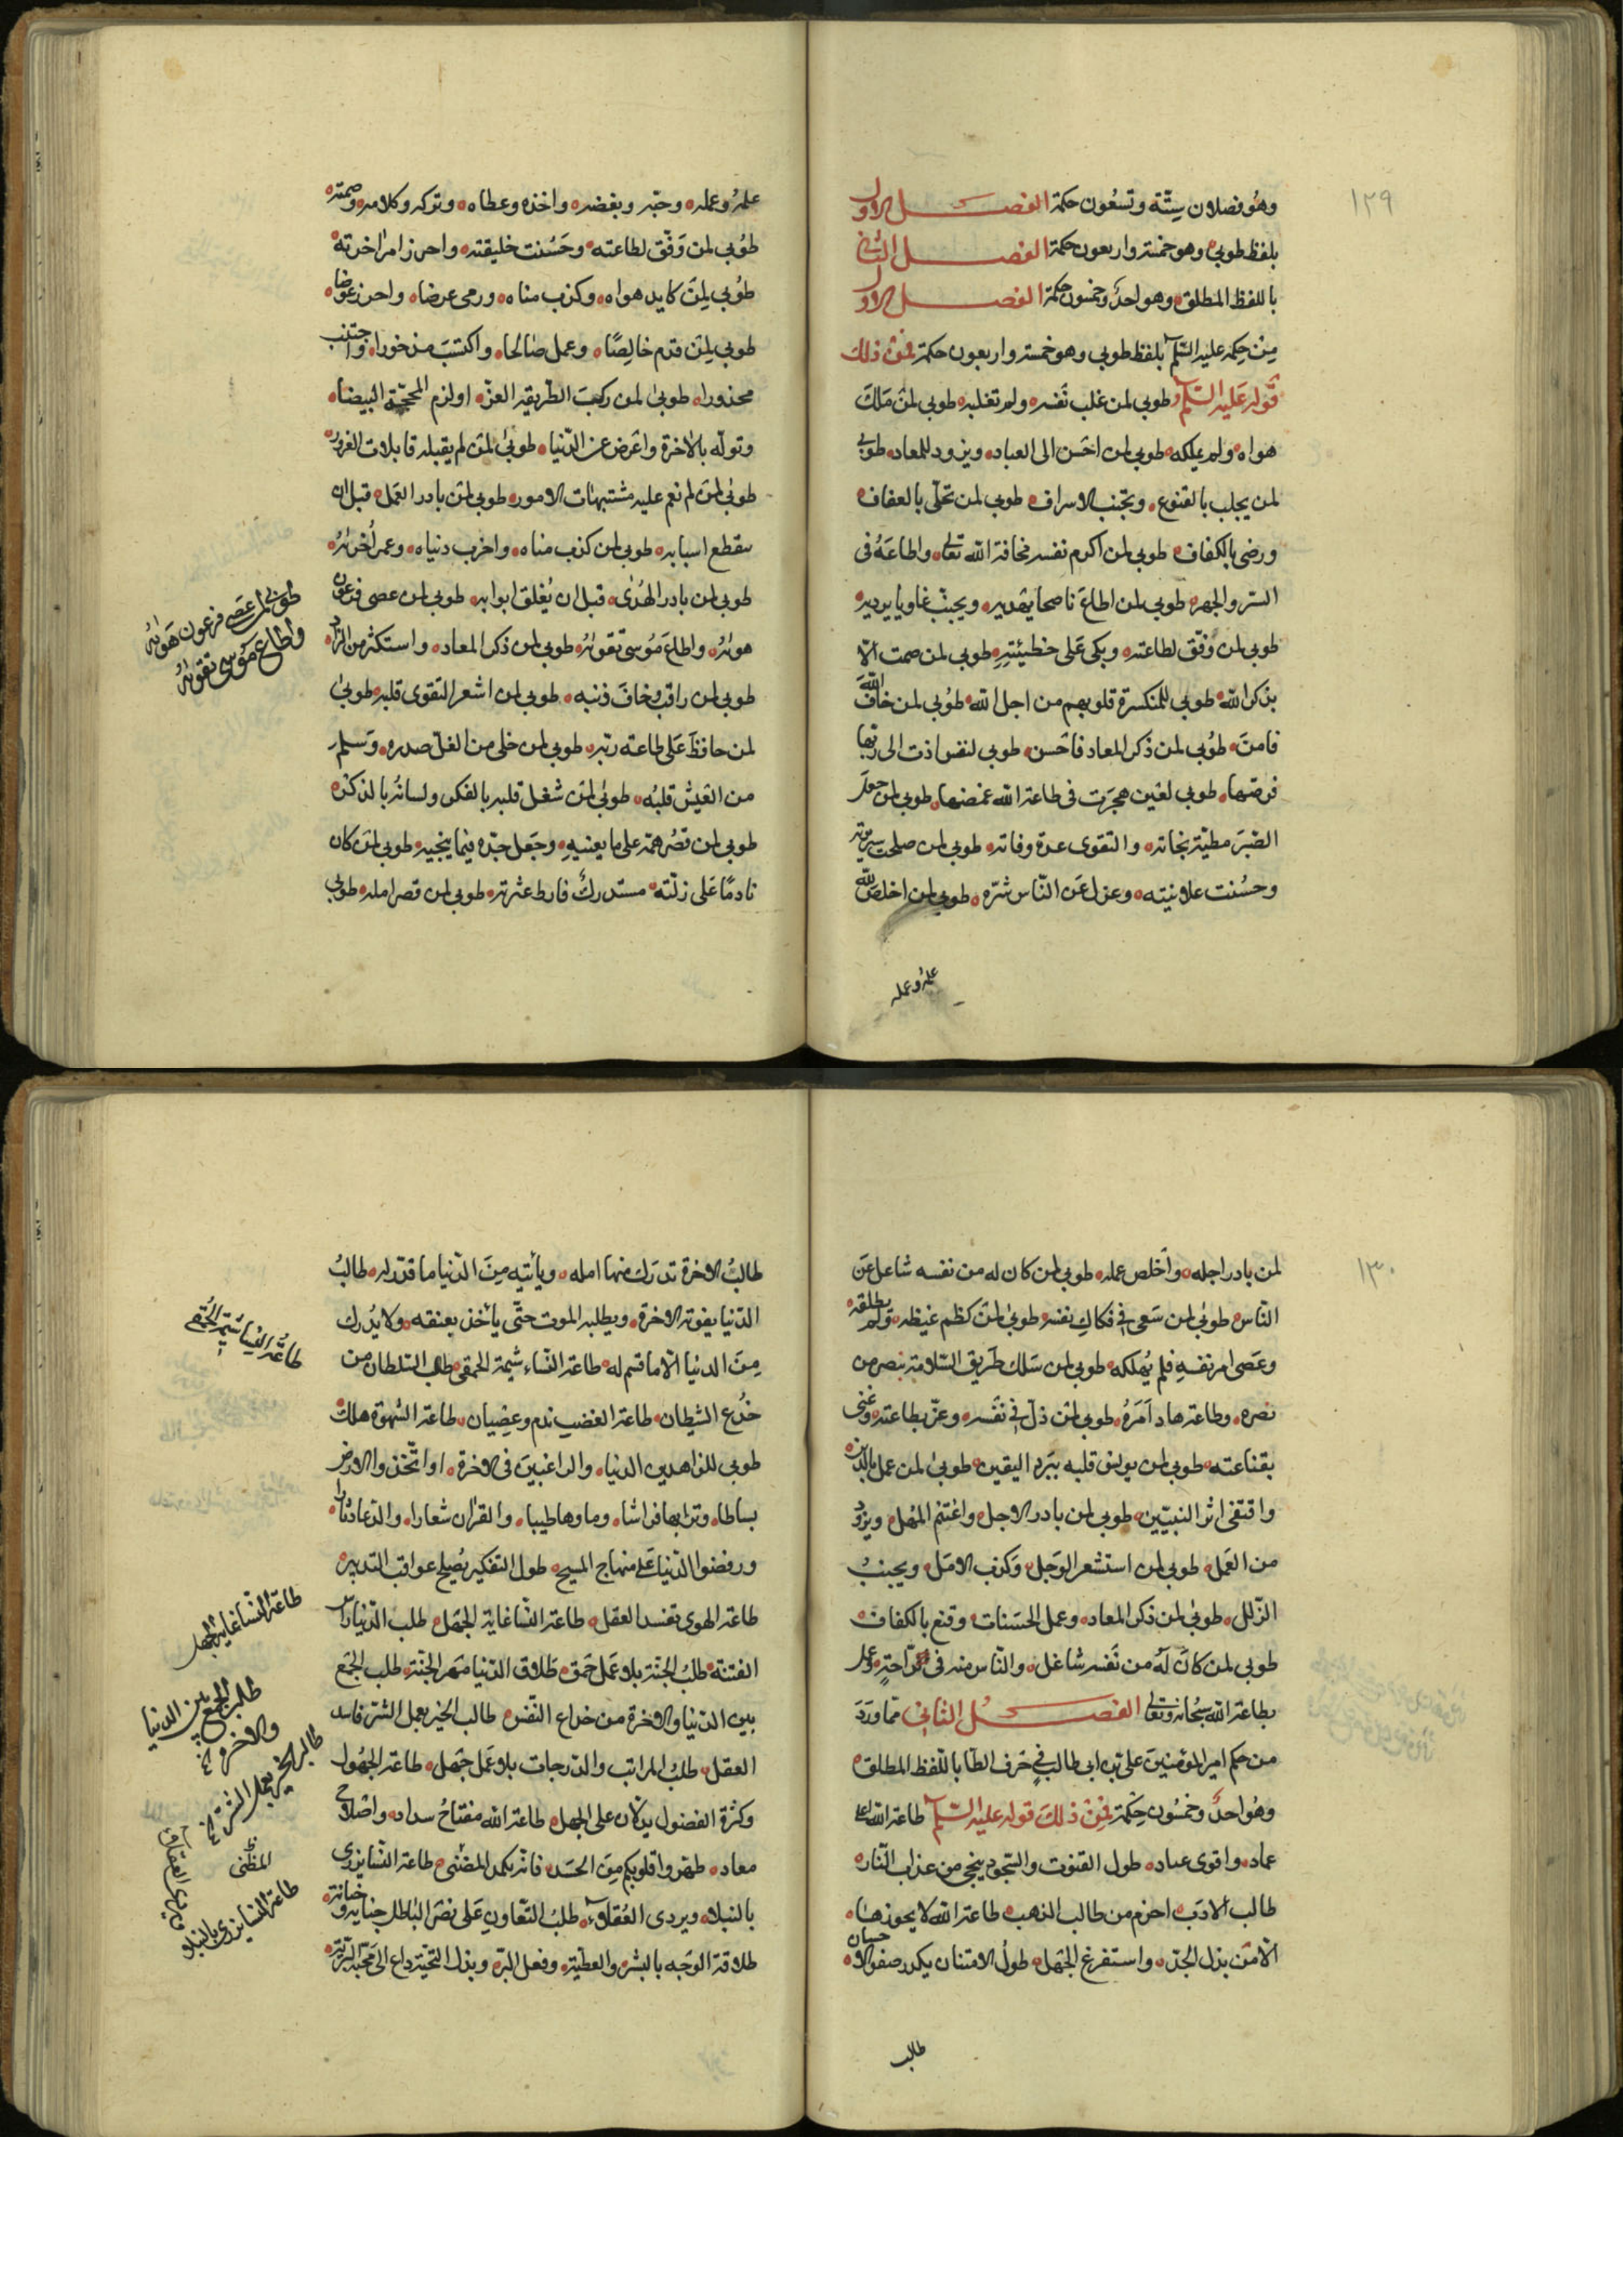 ١٢٩
وهُو فصلان سِتّة وتسعُون حكمة الفصل الاول
بلفظ طوبى وهو خمسة واربعون حكمة الفصل الثانى
باللفظ المطلق وهو احدٌ وخمسون حكمة الفصل الاول
مِنْ حِكمه عليه السّلم بلفظ طوبى وهو خمسة واربعون حكمة فمن ذلك
قوله عليه السّلم طوبى لمن غلب نَفسه ولم تغلبه طوبى لمن مَلكَ
هواه ولم يملكه طوبى لمن احسَن الى العباد ويزود للمعاد طوبى
لمن يجلب بالقنوع ويجتنب الاسراف طوبى لمن تحلّى بالعفاف
ورضى بالكفاف طوبى لمن اكرم نفسه مخافة الله تعالى واطاعَهُ فى
السّر والجهر طوبى لمن اطاعَ ناصحا يهديه ويجنّب غاويا يرديه
طوبى لمن وفّق لطاعته وبكى عَلى خطيئتهِ طوبى لمن صمت الّا
بذكر الله طوبى للمنكسرة قلوبهم من اجل الله طُوبى لمن خافَ الله
فامنَ طوُبى لمن ذكر المعاد فاحَسن طوبى لنفس اذت الى ربّها
فرضَها طوبى لعَين هجرَت فى طاعة الله غمضها طوبى لمن جعلَ
الصّبرَ مطيّة نجاته والتقوى عدة وفاته طوبى لمن صلحت سريرته
وحسُنت علانيته وعزل عَن النّاس شرّه طوبى لمن اخلص لله
علمهُ وعمله
علمهُ وعمله وحبّه وبغضه واخذه وعطاه وتركه وكلامه وصمته
طوُبى لمن وَفّق لطاعته وحَسُنت خليقته واحرز امر اخرته
طوُبى لِمنَ كابد هواه وكذب مناه ورمى عرضا واحرز عوضا
طوبى لِمَن قدم خالِصًا وعمل صَالحا واكتسَبَ مذخورا واجتنب
محذورا طوبىٰ لمن ركبَ الطّريقة العزّ اولزم المحجّة البيضا
وتولّه بالاخرة واعَرض عن الدّنيا طوبىٰ لمن لم يقبله قابلات الغرور
طوبىٰ لمن لم نعم عليه مشتبهات الامور طوبى لمن بادر العَمل قبل ان
ىىقطع اسبابه طوبى لمن كذب مناه واخرب دنياه وعمر اُخرٰئه
طوبى لمن بادر الهُدٰى قبل ان يُغلق ابوابه طوبى لمن عصى فرعون
هوٰئه واطاعَ موُسى تقوٰئه طوبى لمن ذكر المعاد واستكثر من الزاد
طوبى لمن راقب وخافَ ذنبه طوبى لمن اشعر التقوى قلبه طوبىٰ
لمن حافظَ عَلى طاعة ربّه طوبى لمن خلى من الغل صدره وَسلم
من الغيش قلبُه طوبىٰ لمن شغل قلبه بالفكر ولسانهُ بالذكر
طوبى لمن قصُر همّه على ما يعنيهِ وجَعل جدّه فيما ينجيه طوبى لمن كان
نادمًا عَلى زلّته مستدركٌ فارط عثرته طوبى لمن قصر امله طوبى
طوبى لمن عَصى فرعون هَوائه
واطاع موُسى تقوٰئه
١٣٠
لمن بادر اجله واَخلص عمله طوبى لمن كان له من نفسه شاغل عَن
النّاس طوبىٰ لمن سَعى فى فكاكِ نفسه طوبىٰ لمن كظم غيظه ولم يطلقه
وعَصى امر نفسهِ فلم يُهلكه طوبى لمن سَلك طَريق السّلامة بنصر من
نصره وطاعة هاد اَمَرهُ طوبى لمن ذلّ فى نَفسه وعزّ بطاعته وغنى
بقناعته طوبى لمن يولىق قلبه ببَرد اليقين طوبىٰ لمن عمل بالدين
واقتفى اثر النبيّين طوبى لمن بادر الاجل واغتنم المُهل ويزود
من العَمل طوبى لمن استشعر الوَجل وَكذب الامَل ويجنبُ
الزّلل طوبى لمن ذكر المعاد وعمل الحسَنات وقنع بالكفاف
طوبى لمن كانَ لَهُ من نَفسه شاغل والنّاس منه فى راَحةٍ وعمل
بطاعة الله سُبحانه وتعالى الفصلُ الثّانى مماورَدَ
من حكم امير المؤمنينَ على بن ابى طالب فى حَرف الطّا باللّفظ المطلق
وهُو احدٌ وخمسُون حكمة فمن ذلك قوله عليه السّلم طاعة الله اعلى
عماد واقوى عباد طول القنوت والسّجود ينجى من عذاب النّار
طالب الادَب احزم من طالب الذهب طاعة الله لا يحوزها
الّا من بذل الجدّ واستفرغ الجَهل طولُ الامتنان يكدر صفو الاحسان
طالب
طالبُ الاخرة تدرك منها امله ويأتيهِ مِنَ الدّنيا ما قدّر له طالبُ
الدّنيا يفوته الاخرة ويطلبه الموت حتّى يأخذ بعنقه ولا يُدرك
مِنَ الدنيا الّا ما قسم له طاعة النّساء شيمة الحمقى طلب السّلطان من
خدُع الشيطان طاعة الغضب ندم وعصِيان طاعة الشهوة هلك
طوبى للزاهدين الدنيا والراغبينَ فى الاخرة اوا تّخذوا الارض
بساطا وترابها فراشا وماوها طيبا والقرٰان شعارا والدّعا دثارا
ورفضوا الدّنيا عَلى منهاج المسيح طول التفكير يُصلح عواقب التدبير
طاعة الهوى تفسد العقل طاعة النّسا غاية الجَهل طلب الدّنيا راس
الفتنة طلبُ الجنة بلا عَمل حَمق طلاق الدّنيا مَهر الجنّة طلب الجَمع
بين الدّنيا والاخرة من خداع النّفس طالب الخير بعمل الشّر فاسد
العقل طلبُ المراتب والدّرجات بلا عَمل جَهل طاعة الجهُول
وكثرة الفضول يدلّان على الجهل طاعة الله مفتاحُ سداد واصَلاح
معاد طهرّوا قلوبكم مِنَ الحسَد فانّه يكمد المضنى طاعة النّسا يزرى
بالنبلا ويردى العُقلاء طلبُ التّعاونِ عَلى نصَر البَاطل جناية وخيانة
طلاقة الوَجه بالبشر والعطيّة وفعل البرّ وبذل التحيّة داع الى محَبّة البريّة
طاعَة النّسا شيمة الحُمقى
طاعة النّسا غاية الجهل
طلب الجمع بين الدنيا
والاخرة
طالب الخير بعمل الشر
المظنى
طاعة النسا يزرى بالنبلا
ويردى العقلاء